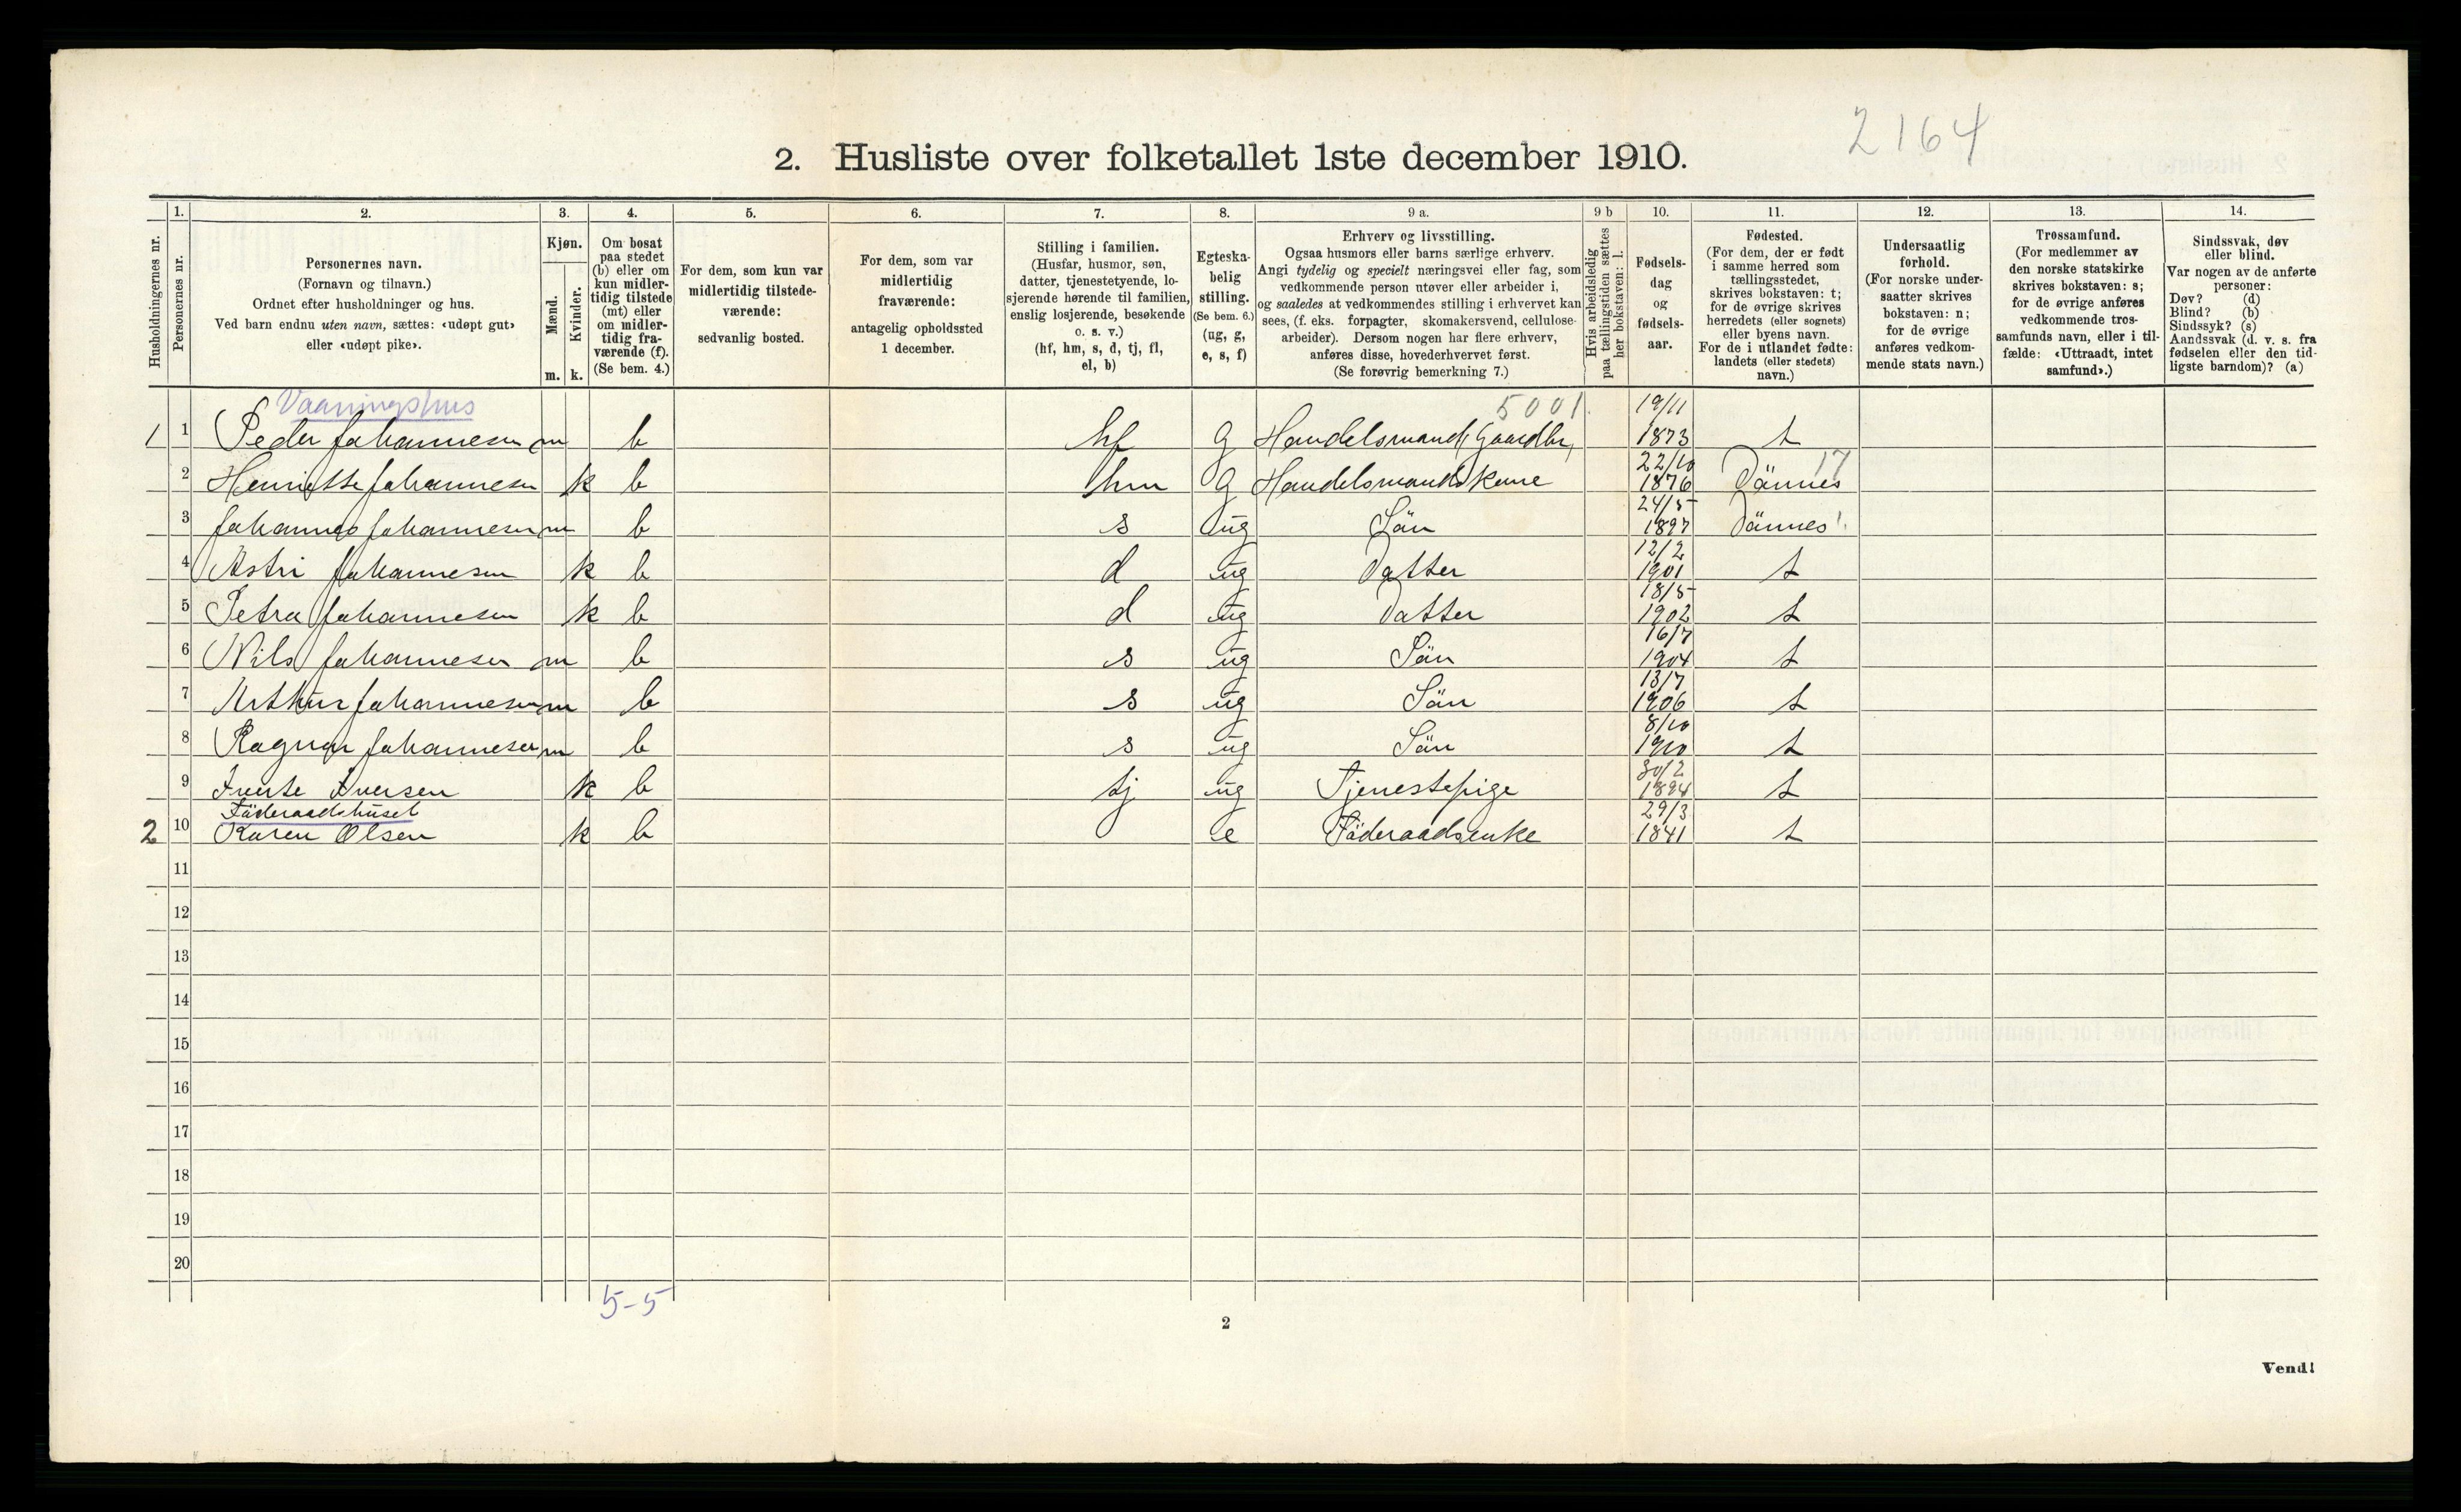 2164
2. Husliste over folketallet 1ste december 1910.
Husholdningernes nr.
1.
Personernes nr.
2.
Personernes navn.
(Fornavn og tilnavn.)
Ordnet efter husholdninger og hus.
Ved barn endnu uten navn, sættes: «udøpt gut»
eller «udøpt pike».
3.
Kjøn.
Mænd.
Kvinder.
m. k.
4.
Om bosat
paa stedet
(b) eller om
kun midler-
tidig tilstede
(mt) eller
om midler-
tidig fra-
værende (f).
(Se bem. 4.)
5.
For dem, som kun var
midlertidig tilstede-
værende:
sedvanlig bosted.
6.
For dem, som var
midlertidig
fraværende:
antagelig opholdssted
1 december.
7.
Stilling i familien.
(Husfar, husmor, søn,
datter, tjenestetyende, lo-
sjerende hørende til familien,
enslig losjerende, besøkende
o. s. v.)
(hf, hm, s, d, tj, fl,
el, b)
8.
Egteska-
belig
stilling.
(Se bem. 6.)
(ug, g,
e, s, f)
9 a.
Erhverv og livsstilling.
Ogsaa husmors eller barns særlige erhverv.
Angi tydelig og specielt næringsvei eller fag, som
vedkommende person utøver eller arbeider i,
og saaledes at vedkommendes stilling i erhvervet kan
sees, (f. eks. forpagter, skomakersvend, cellulose-
arbeider). Dersom nogen har flere erhverv,
anføres disse, hovederhvervet først.
(Se forøvrig bemerkning 7.)
9 b
Hvis arbeidsledig
paa tællingstiden sættes
her bokstaven: l.
10.
Fødsels-
dag
og
fødsels-
aar.
11.
Fødested.
(For dem, der er født
i samme herred som
tællingsstedet,
skrives bokstaven: t;
for de øvrige skrives
herredets (eller sognets)
eller byens navn.
For de i utlandet fødte:
landets (eller stedets)
navn.)
12.
Undersaatlig
forhold.
(For norske under-
saatter skrives
bokstaven: n;
for de øvrige
anføres vedkom-
mende stats navn.)
13.
Trossamfund.
(For medlemmer av
den norske statskirke
skrives bokstaven: s;
for de øvrige anføres
vedkommende tros-
samfunds navn, eller i til-
fælde: «Uttraadt, intet
samfund».)
14.
Sindssvak, døv
eller blind.
Var nogen av de anførte
personer:
Døv? (d)
Blind? (b)
Sindssyk? (s)
Aandssvak (d. v. s. fra
fødselen eller den tid-
ligste barndom)? (a)
Vaaningshus
1 1 Peder Johannesen m b hf g Handelsmand, Gaardbr, 5001. 19/11 1873 t
2 Henriette Johannesen k b hm g Handelsmandskone 22/10 1876 Dännes 17
3 Johannes Johannesen m b s ug Sön 24/5 1897 Dännes
4 Astri Johannesen k b d ug Datter 12/2 1901 t
5 Petra Johannesen k b d ug Datter 18/5 1902 t
6 Nils Johannesen m b s ug Sön 16/7 1904 t
7 Arthur Johannesen m b s ug Sön 13/7 1906 t
8 Ragnar Johannesen m b s ug Sön 8/10 1910 t
9 Iverte Iversen k b tj ug Tjenestepige 30/2 1894 t
Föderaadshuset
2 10 Karen Olsen k b e Föderaadsenke 29/3 1841 t
11
12
13
14
15
16
17
18
19
20
5-5
2
Vend!